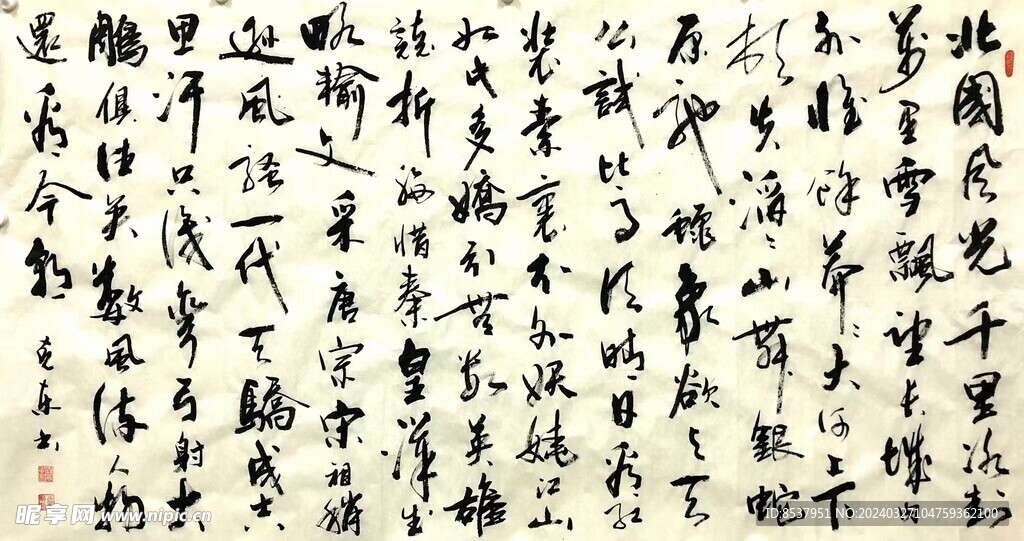 北國风光千里冰封
萬里雪飄望长城内
外惟餘莽〻大河上下
頓失滔〻山舞銀蛇
原馳蠟象欲与天
公試比高须晴日看红
装素裹分外妖娆江山
如此多嬌引無数英雄
競折腰惜秦皇漢武
略輸文采唐宗宋祖稍
逊風騷一代天驕成吉
思汗只識彎弓射大
雕俱往矣數風流人物
還看今朝
克东书
昵享网 www.nipic.cn
ID:8537951 NO:20240327104759362100